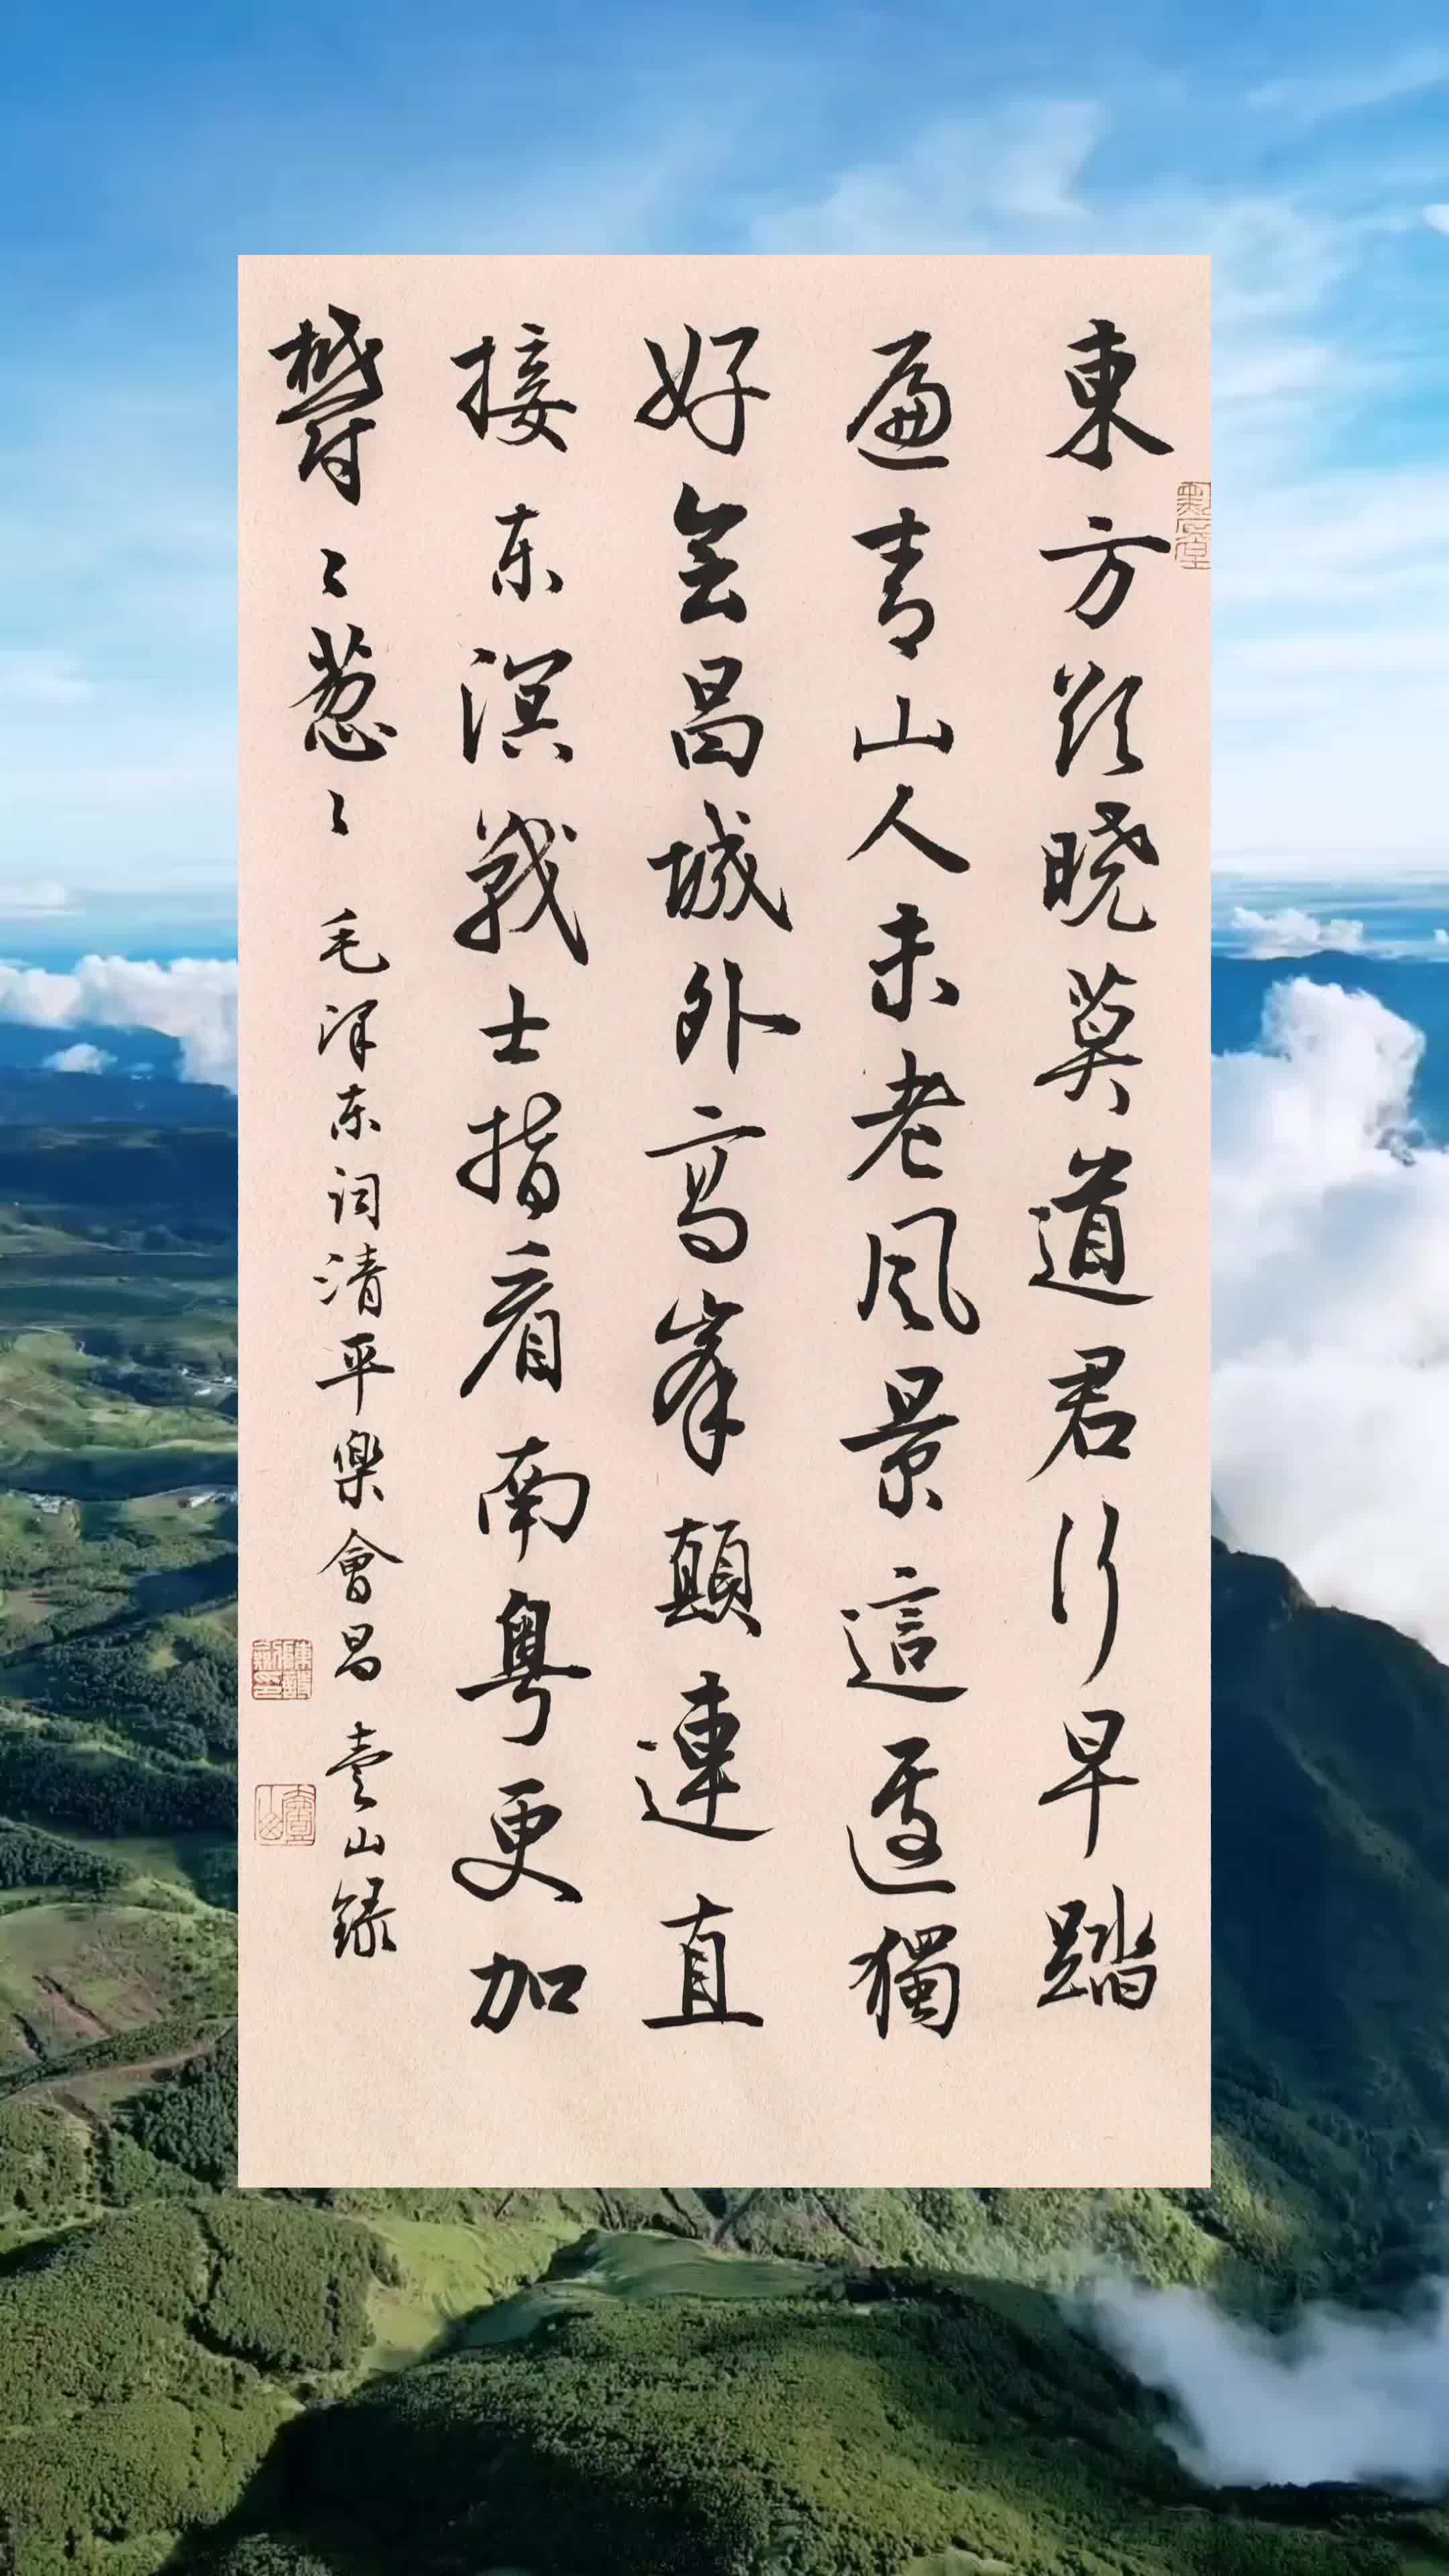 東方欲晓莫道君行早踏
遍青山人未老风景這邊獨
好会昌城外高峯顛連直
接东溟戰士指看南粤更加
鬱〻葱〻 毛泽东词清平樂會昌 壹山録